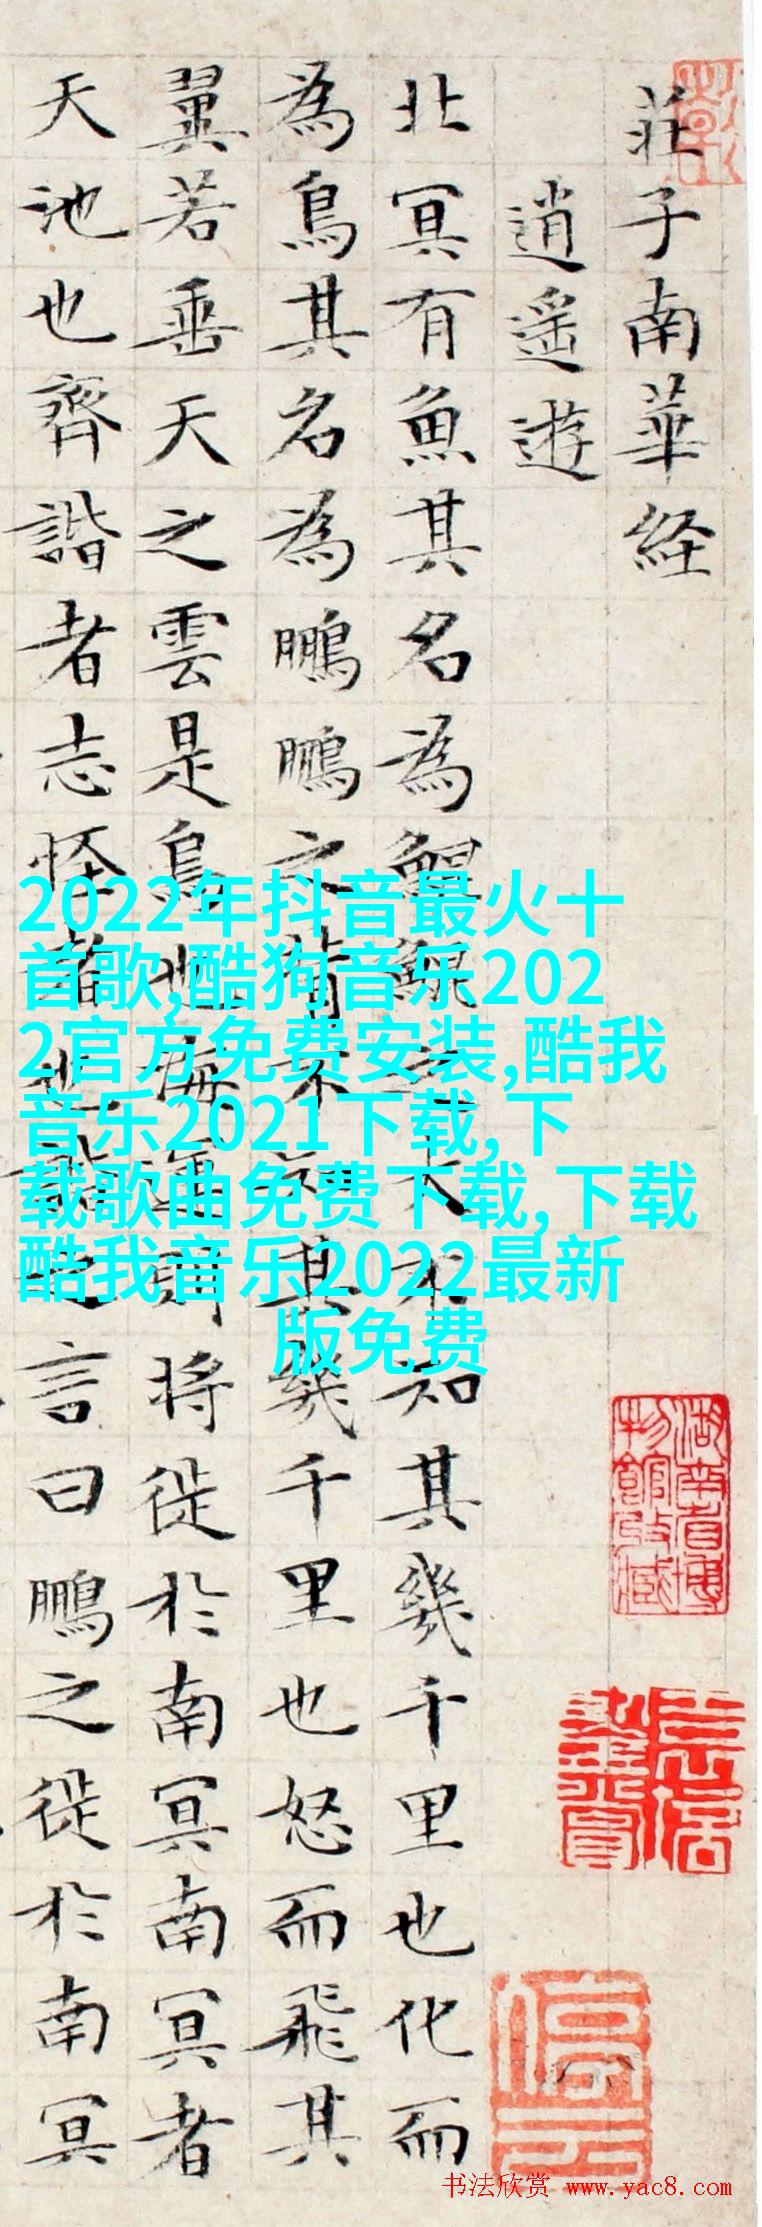 莊子南華経
逍遥遊
北冥有魚其名為鯤鯤之大不知其幾千里也化而
為鳥其名為鵬鵬之背不知其幾千里也怒而飛其
翼若垂天之雲是鳥也海運則將徙於南冥南冥者
天池也齊諧者志怪者也諧之言曰鵬之徙於南冥
2022年抖音最火十
首歌,酷狗音乐202
2官方免费安装,酷我
音乐2021下载,下
载歌曲免费下载,下载
酷我音乐2022最新
版免费
湖南省博
物館收藏
书法欣赏 www.yac8.com